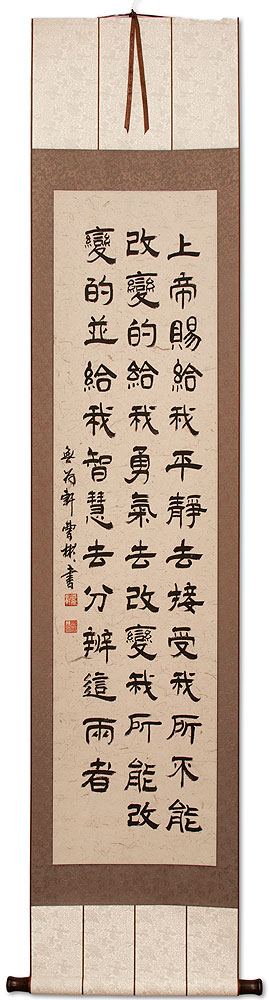 上帝賜給我平靜去接受我所不能
改變的給我勇氣去改變我所能改
變的並給我智慧去分辨這兩者
軒 書